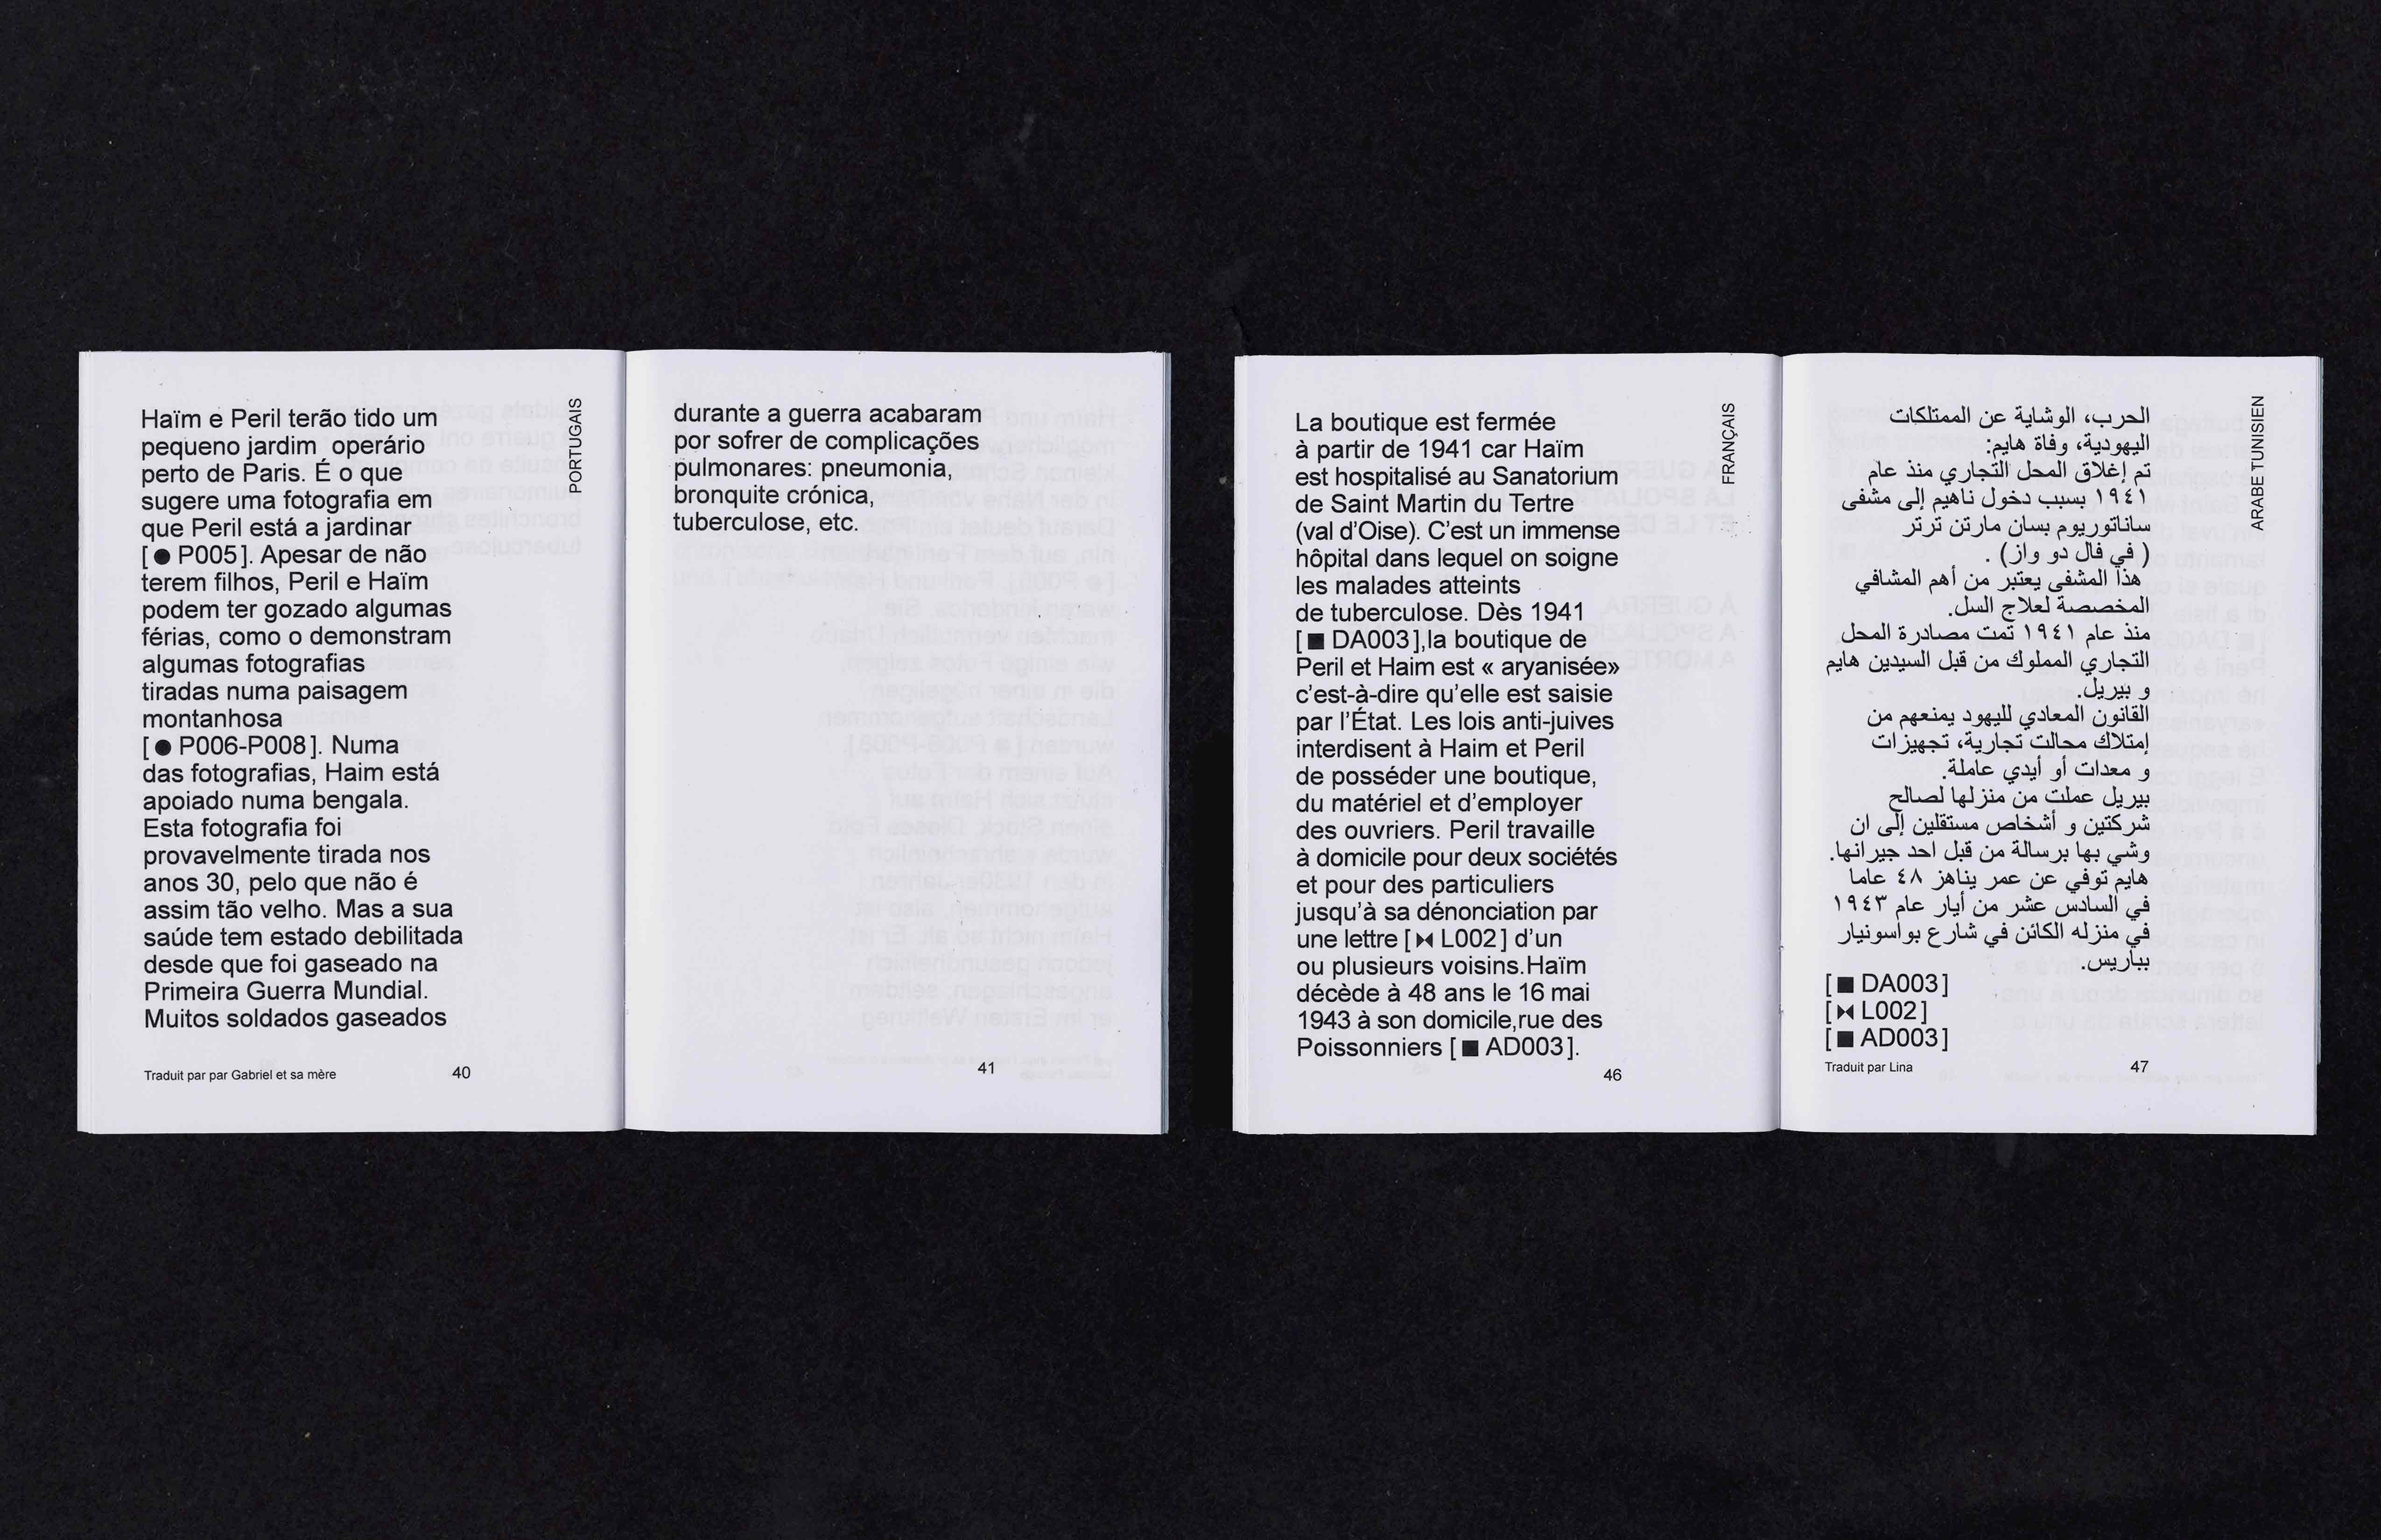 Haïm e Peril terão tido um
pequeno jardim operário
perto de Paris. É o que
sugere uma fotografia em
que Peril está a jardinar
[ ● P005]. Apesar de não
terem filhos, Peril e Haïm
podem ter gozado algumas
férias, como o demonstram
algumas fotografias
tiradas numa paisagem
montanhosa
[ ● P006-P008]. Numa
das fotografias, Haim está
apoiado numa bengala.
Esta fotografia foi
provavelmente tirada nos
anos 30, pelo que não é
assim tão velho. Mas a sua
saúde tem estado debilitada
desde que foi gaseado na
Primeira Guerra Mundial.
Muitos soldados gaseados
PORTUGAIS
Traduit par par Gabriel et sa mère
40
durante a guerra acabaram
por sofrer de complicações
pulmonares: pneumonia,
bronquite crónica,
tuberculose, etc.
41
La boutique est fermée
à partir de 1941 car Haïm
est hospitalisé au Sanatorium
de Saint Martin du Tertre
(val d’Oise). C’est un immense
hôpital dans lequel on soigne
les malades atteints
de tuberculose. Dès 1941
[ ■ DA003],la boutique de
Peril et Haim est « aryanisée»
c’est-à-dire qu’elle est saisie
par l’État. Les lois anti-juives
interdisent à Haim et Peril
de posséder une boutique,
du matériel et d’employer
des ouvriers. Peril travaille
à domicile pour deux sociétés
et pour des particuliers
jusqu’à sa dénonciation par
une lettre [ ⧓ L002] d’un
ou plusieurs voisins.Haïm
décède à 48 ans le 16 mai
1943 à son domicile,rue des
Poissonniers [ ■ AD003].
FRANÇAIS
46
الحرب، الوشاية عن الممتلكات
اليهودية، وفاة هايم:
تم إغلاق المحل التجاري منذ عام
١٩٤١ بسبب دخول ناهيم إلى مشفى
ساناتوريوم بسان مارتن ترتر
( في فال دو واز) .
هذا المشفى يعتبر من أهم المشافي
المخصصة لعلاج السل.
منذ عام ١٩٤١ تمت مصادرة المحل
التجاري المملوك من قبل السيدين هايم
و بيريل.
القانون المعادي لليهود يمنعهم من
إمتلاك محالت تجارية، تجهيزات
و معدات أو أيدي عاملة.
بيريل عملت من منزلها لصالح
شركتين و أشخاص مستقلين إلى ان
وشي بها برسالة من قبل احد جيرانها.
هايم توفي عن عمر يناهز ٤٨ عاما
في السادس عشر من أيار عام ١٩٤٣
في منزله الكائن في شارع بواسونيار
بباريس.
[ ■ DA003]
[ ⧓ L002]
[ ■ AD003]
ARABE TUNISIEN
Traduit par Lina
47